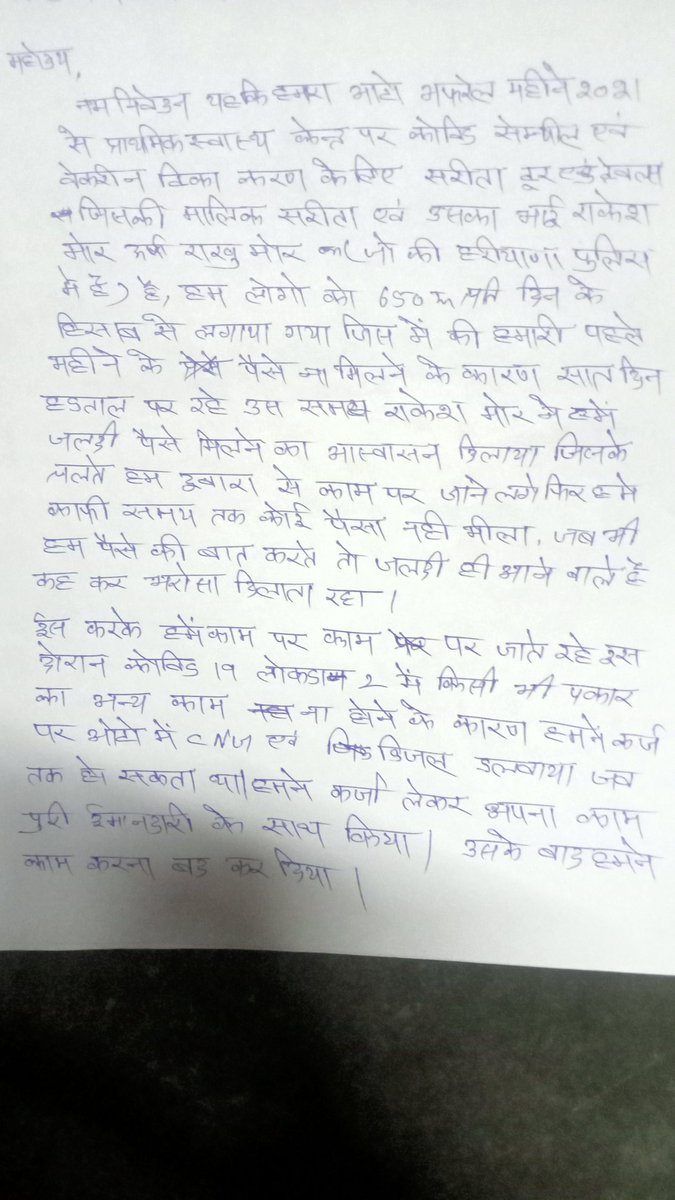 महोदय,
नम्र निवेदन यह कि हमारा आटो अप्रेल महीने 2021
से प्राथमिक स्वास्थ्य केन्द्र पर कोविड सेम्पील एवं
वेक्सीन टिका करण के लिए सरीता टूर एंड ट्रेवल्स
जिसकी मालिक सरीता एवं उसका भाई राकेश
मोर उर्फ राखु मोर (जो की हरीयाणा पुलिस
में है) है, हम लोगो को 650 रू प्रति दिन के
हिसाब से लगाया गया जिस में की हमारी पहले
महीने के पैसे ना मिलने के कारण सात दिन
हडताल पर रहे उस समय राकेश मोर ने हमें
जलदी पैसे मिलने का आस्वासन दिलाया जिसके
चलते हम दुबारा से काम पर जाने लगे फिर हमे
काफी समय तक कोई पैसा नही मीला, जब भी
हम पैसे की बात करते तो जलदी ही आने वाले है
कह कर भरोसा दिलाता रहा।
ईस करके हमें काम पर काम पर जाते रहे इस
दोरान कोविड 19 लोकडाउन 2 में किसी भी प्रकार
का अन्य काम ना होने के कारण हमने कर्ज
पर ओटो में CNG एवं डिजल डलवाया जब
तक हो सकता था। हमने कर्जा लेकर अपना काम
पुरी ईमानदारी के साथ किया। उसके बाद हमने
काम करना बंद कर दिया।